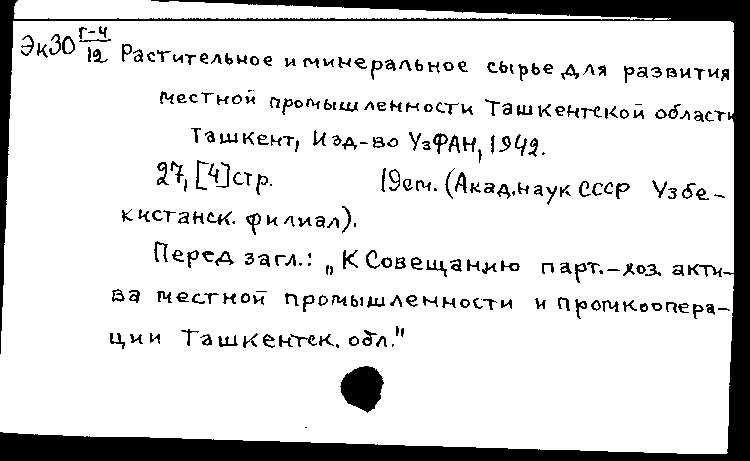 Эк30 Г-4/12 Растительное и минеральное сырье для развития
местной промышленности Ташкентской области
Ташкент, Изд-во УзФАН, 1942.
27, [4] стр. 19см. (Акад. наук СССР Узбе-
кистанск. филиал).
Перед загл.: „К Совещанию парт.-хоз. акти-
ва местной промышленности и промкоопера-
ции Ташкентск. обл."